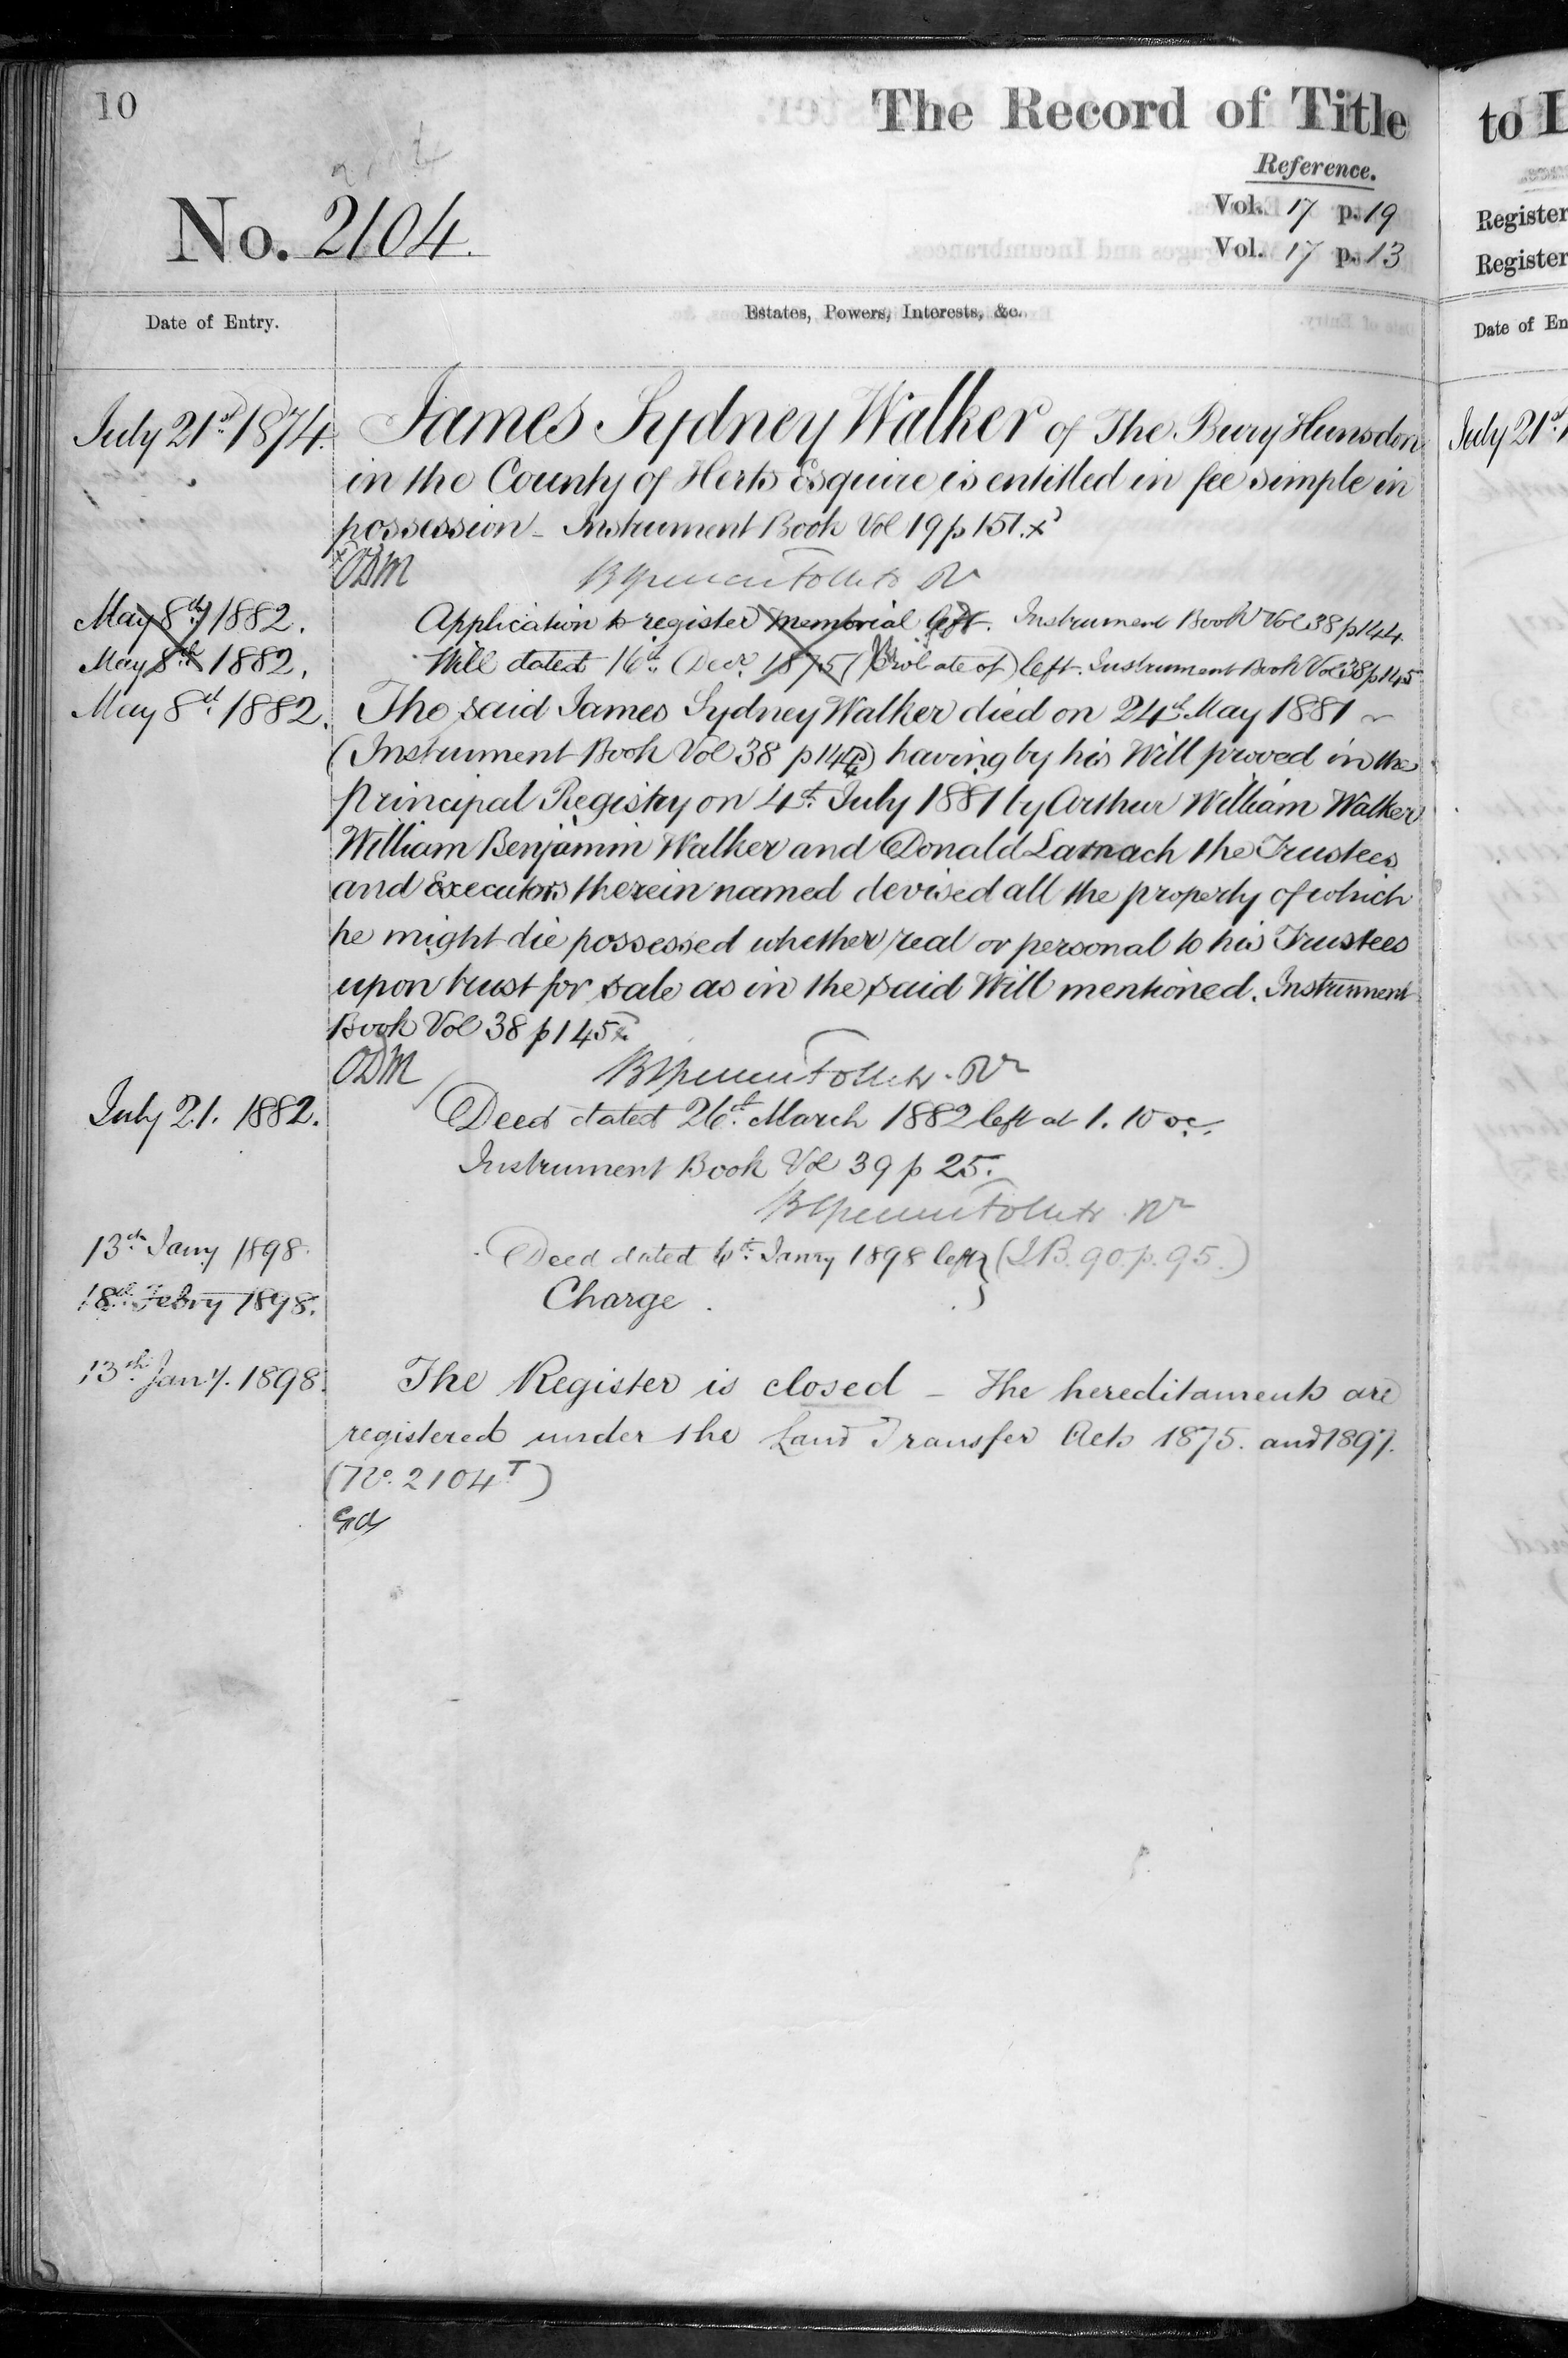 10
The Record of Title
Reference.
No. 2104.
Vol. 17 p. 19
Vol. 17 p. 13
Date of Entry.
Estates, Powers, Interests, &c.
July 21st 1874. James Sydney Walker of The Bury Hunsdon
in the County of Herts Esquire is entitled in fee simple in
possession - Instrument Book Vol 19 p 151. x
x ODM
May 8th 1882. Application to register memorial left. Instrument Book Vol 38 p 144
May 8th 1882. Will dated 16th Decr. 1875 (Probate of) left. Instrument Book Vol 38 p 145
May 8th 1882. The said James Sydney Walker died on 24th May 1881
(Instrument Book Vol 38 p 144) having by his Will proved in the
Principal Registry on 4th July 1881 by Arthur William Walker
William Benjamin Walker and Donald Larnach the Trustees
and Executors therein named devised all the property of which
he might die possessed whether real or personal to his Trustees
upon trust for sale as in the said Will mentioned. Instrument
Book Vol 38 p 145 x
ODM
July 21. 1882. Deed dated 26th March 1882 left at 1.10
Instrument Book Vol 39 p 25.
13th Jany 1898. Deed dated 6th Janry 1898 left } (I.B. 90. p. 95.)
18th Febry 1898. Charge.
13th Jany. 1898. The Register is closed - The hereditaments are
registered under the Land Transfer Acts 1875. and 1897.
(No. 2104T)
to L
Register
Register
Date of En
July 21st 1